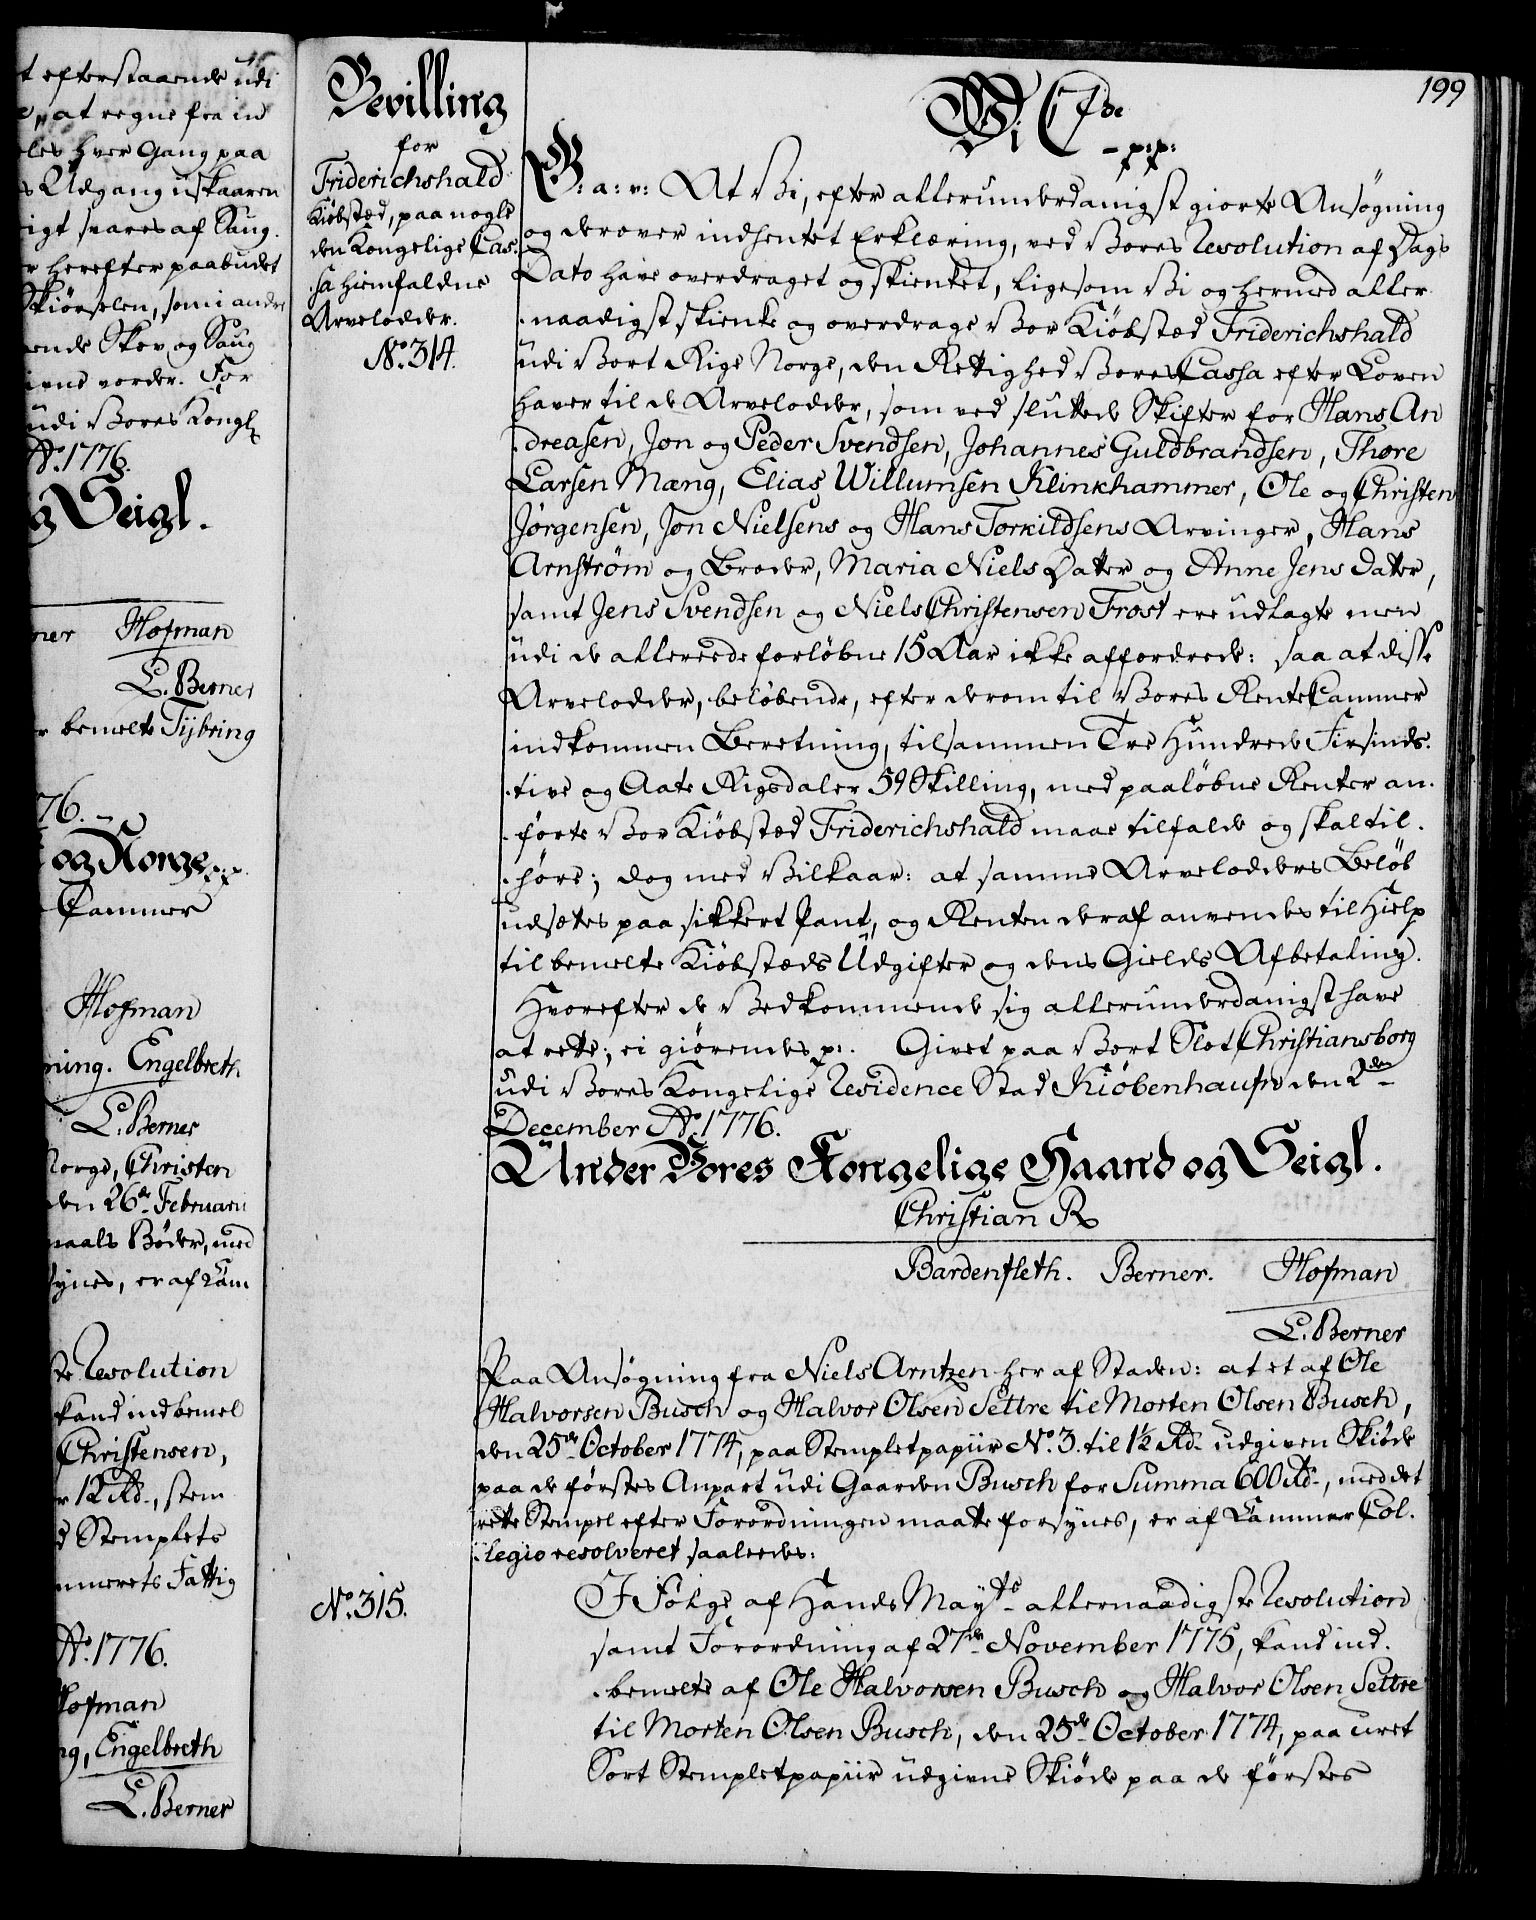 t efterstaaende udi
at regne fra in
les hver Gang paa
s Udgang uskaaren
rigt svares af Saug.
r herefter paabudet
Skiörselen, som i andre
ende Skov og Saug
ivne vorder. For
udi Vores Kongl.
Ao. 1776.
g Seigl.
ner Hofman
L. Berner
r bemelte Tybring
76.
og Norge p.p.
Cammer
Hofman
ning. Engelbreth
L. Berner
Norge, Christen
den 26de Februarii
maals Böder, med
synes, er af Cam
te Resolution
kand indbemel
Christensen,
r 12 Rd., stem
d Stemplets
mmerets Fattig
Ao. 1776.
Hofman
ng, Engelbreth
L. Berner
Bevilling
for
Friderichshald
Kiöbstæd, paa nogle
den Kongelige Cas-
sa hiemfaldne
Arvelodder.
No. 314.
199
Wi C 7de
- p:p:
G: a: v: At Vi, efter allerunderdanigst giorte Ansögning
og derover indhentet Erklæring, ved Vores Resolution af Dags
Dato have overdraget og skienket, ligesom Vi og hermed aller-
naadigst skienke og overdrage Vor Kiöbstæd Friderichshald
udi Vort Rige Norge, den Rettighed Vores Cassa efter Loven
haver til de Arvelodder, som ved sluttede Skifter for Hans An
dreasen, Jon og Peder Svendsen, Johannes Guldbrandsen, Thore
Larsen Mæng, Elias Willumsen Klinkhammer, Ole og Christen
Jörgensen, Jon Nielsens og Hans Torkildsens Arvinger, Hans
Arnström og Broder, Maria Niels Datter og Anne Jens Dater,
samt Jens Svendsen og Niels Christensen Frost ere udlagte men
udi de allereede forlöbne 15 Aar ikke affordrede: saa at disse
Arvelodder, belöbende, efter derom til Vores Rente Cammer
indkommen Beretning, tilsammen Tre Hundrede Firsinds-
tive og Aate Rigsdaler 59 Skilling, med paalöbne Renter an-
förte Vor Kiöbstæd Friderichshald maae tilfalde og skal til-
höre; dog med Vilkaar: at samme Arvelodders Belöb
udsætes paa sikkert Pant, og Renten deraf anvendes til Hielp
til bemelte Kiöbstæds Udgifter og dens Gields Afbetaling.
Hvorefter de Vedkommende sig allerunderdanigst have
at rette; ei giörendes p:. Givet paa Vort Slot Christiansborg
udi Vores Kongelige Residence Stad Kiöbenhaufn den 2den
December Ao. 1776.
Under Vores Kongelige Haand og Seigl.
Christian R
Bardenfleth. Berner. Hofman
L. Berner
Paa Ansögning fra Niels Arntzen her af Staden: at et af Ole
Halvorsen Busch og Halvor Olsen Settre til Morten Olsen Busch,
den 25de October 1774, paa Stempletpapiir No. 3. til 1½ Rd. udgiven Skiöde
paa de förstes Anpart udi Gaarden Busch for Summa 600 Rd., med det
rette Stempel efter Forordningen maatte forsynes, er af Cammer Col-
legio resolveret saaledes:
No. 315.
I Fölge af Hands Mayts. allernaadigste Resolution
samt Forordning af 27de November 1775, kand ind-
bemelte af Ole Halvorsen Busch og Halvor Olsen Settre
til Morten Olsen Busch, den 25de October 1774, paa uret
Sort Stempletpapiir udgivne Skiöde paa de förstes